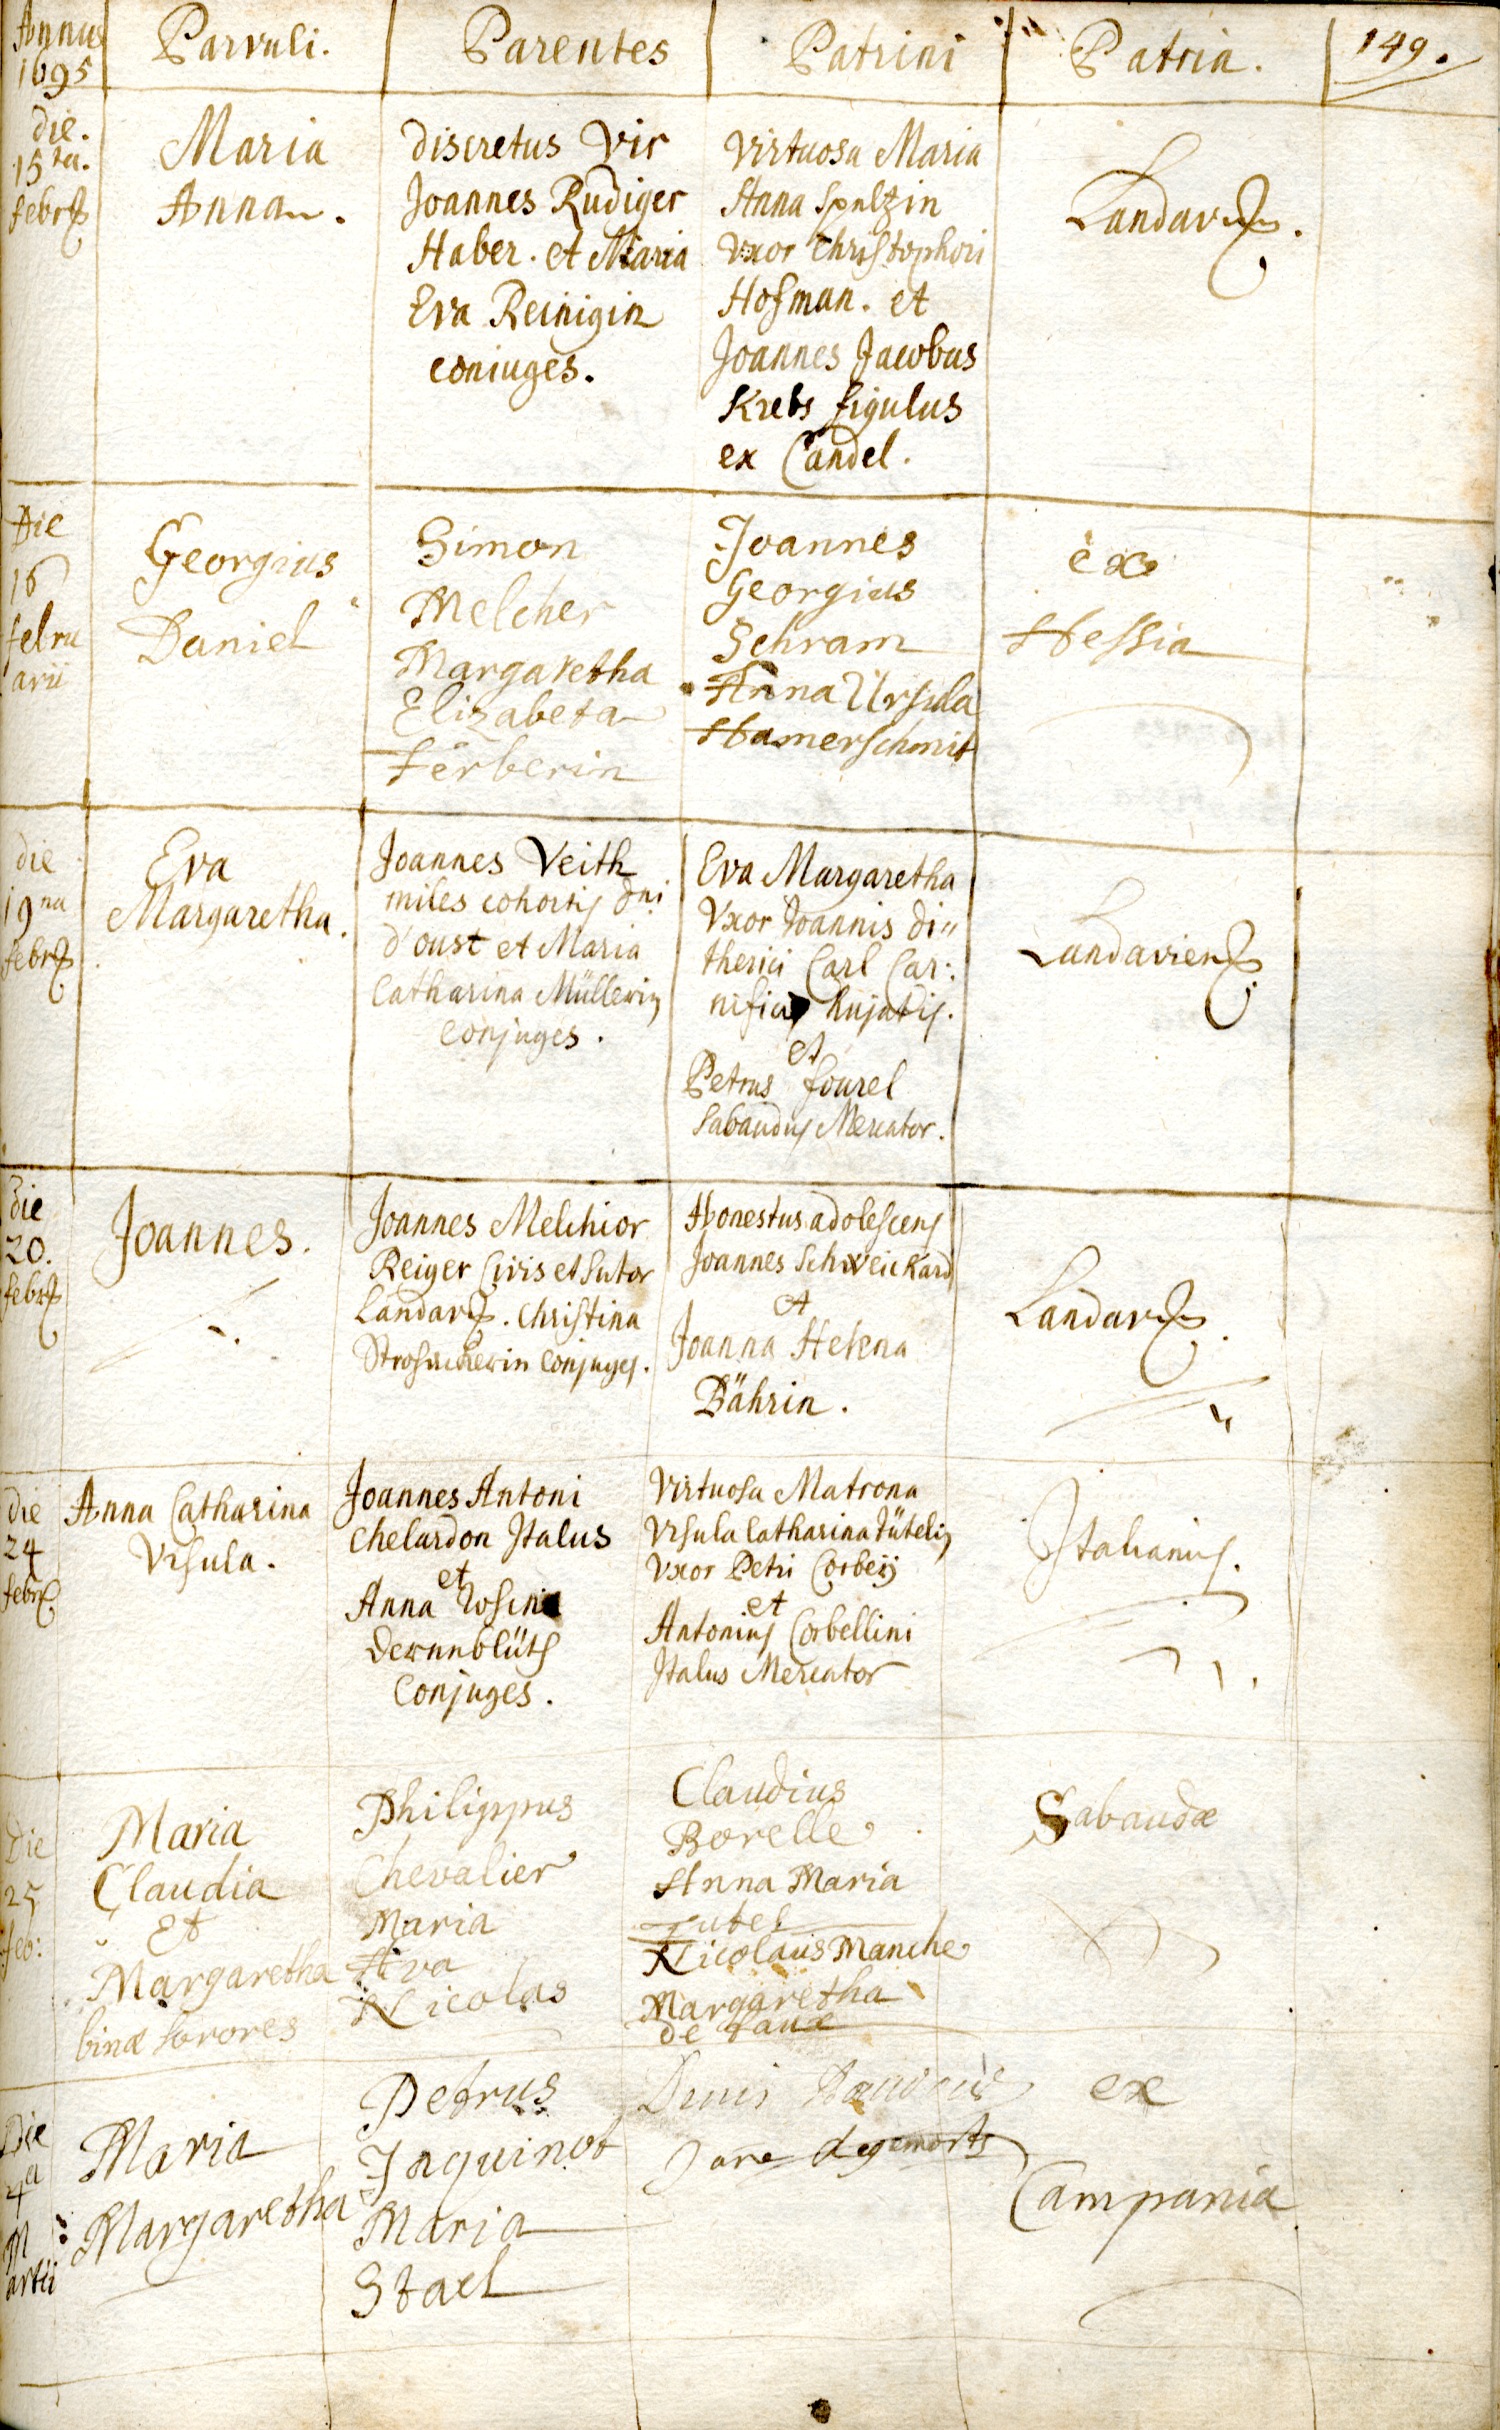 Annus
1695
Parvuli.
Parentes
Patrini
Patria.
149.
die.
15ta.
febr
Maria
Anna.
discretus Vir
Joannes Rudiger
Haber. et Maria
Eva Reinigin
coniuges.
Virtuosa Maria
Anna Spultzin
Vxor Christophori
Hofman. et
Joannes Jacobus
Krebs figulus
ex Candel.
Landav.
Die
16
febru
arii
Georgius
Daniel
Simon
Melcher
Margaretha
Elizabeta
Ferberin
Joannes
Georgius
Schram
Anna Ursula
Hamerschmit
ex
Hessia
die
19na
febr
Eva
Margaretha.
Joannes Veith
miles cohortis dni
d'oust et Maria
Catharina Müllerin
conjuges.
Eva Margaretha
Vxor Joannis di"
therici Carl Car:
nificis hujatis.
et
Petrus fourel
Sabaudus Mercator.
Landaviens
die
20.
febr
Joannes.
Joannes Melchior
Reiger Civis et Sutor
Landav. Christina
conjuges.
Honestus adolescens
Joannes Schweickard
et
Joanna Helena
Bährin.
Landav
die
24
febr
Anna Catharina
Vrsula.
Joannes Antoni
Chelardon Italus
et
Anna Rosina
dernnblüth
Conjuges.
Virtuosa Matrona
Vrsula Catharina Dütelin
Vxor Petri Corbeij
et
Antonius Corbellini
Italus Mercator
Italianus.
Die
25
feb:
Maria
Claudia
Et
Margaretha
binæ sorores
Philippus
Chevalier
Maria
Eva
Nicolas
Claudius
Borelle
Anna Maria
Nicolaus Manche
Margaretha
de
Sabaudæ
Die
4a
M
artii
Maria
Margaretha
Petrus
Jaquinot
Maria
Stael
ex
Campania